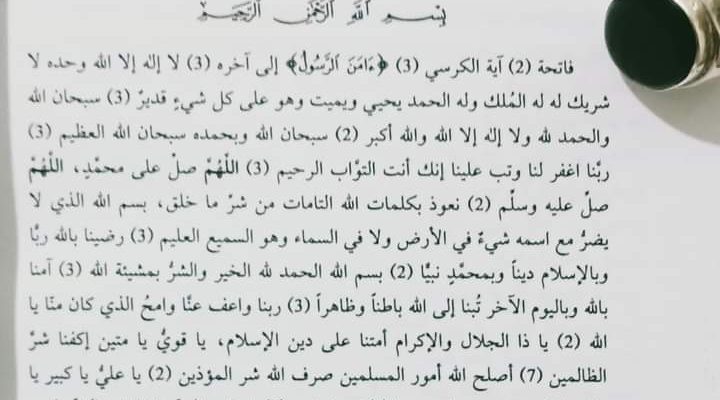 بِسْمِ اللَّهِ الرَّحْمَنِ الرَّحِيمِ
فاتحة (2) آية الكرسي (3) ﴿ءَامَنَ الرَّسُولُ﴾ إلى آخره (3) لا إله إلا الله وحده لا
شريك له له المُلك وله الحمد يحيي ويميت وهو على كل شيءٍ قديرٌ (3) سبحان الله
والحمد لله ولا إله إلا الله والله أكبر (2) سبحان الله وبحمده سبحان الله العظيم (3)
ربَّنا اغفر لنا وتب علينا إنك أنت التوَّاب الرحيم (3) اللَّهُمَّ صلِّ على محمَّدٍ، اللَّهُمَّ
صلِّ عليه وسلِّم (2) نعوذ بكلمات الله التامات من شرِّ ما خلق، بسم الله الذي لا
يضرُّ مع اسمه شيءٌ في الأرض ولا في السماء وهو السميع العليم (3) رضينا بالله ربًّا
وبالإسلام ديناً وبمحمَّدٍ نبيًّا (2) بسم الله الحمد لله الخير والشرُّ بمشيئة الله (3) آمنا
بالله وباليوم الآخر تُبنا إلى الله باطناً وظاهراً (3) ربنا واعف عنَّا وامحُ الذي كان منَّا يا
الله (2) يا ذا الجلال والإكرام أمتنا على دين الإسلام، يا قويُّ يا متين إكفنا شرَّ
الظالمين (7) أصلح الله أمور المسلمين صرف الله شر المؤذين (2) يا عليُّ يا كبير يا